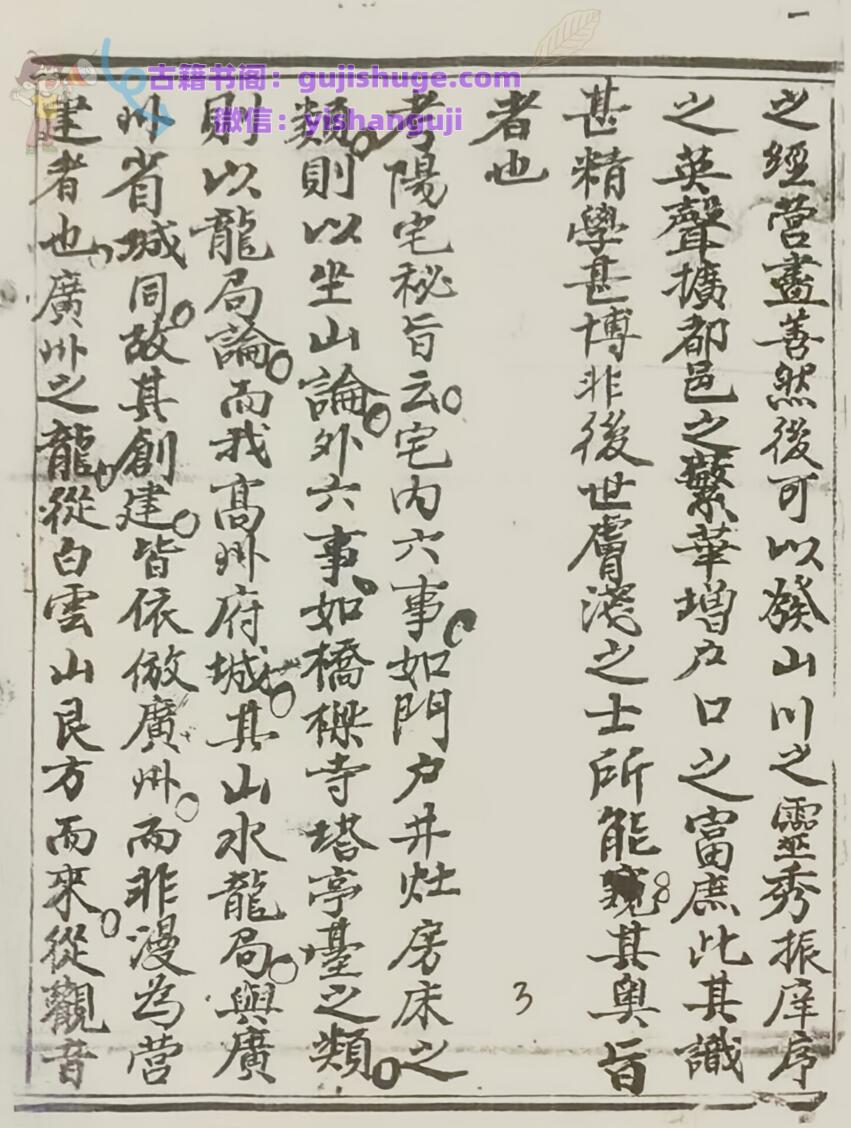 一
古籍书阁：gujishuge.com
微信：yishanguji
之經营盡善然後可以發山川之靈秀振庠序
之英聲擴都邑之繁華增户口之富庶此其識
甚精學甚博非後世膚淺之士所能窺其奥旨
者也
3
考陽宅秘旨云宅内六事如門户井灶房床之
類則以坐山論外六事如橋樑寺塔亭臺之類
則以龍局論而我高州府城其山水龍局與廣
州省城同故其創建皆依倣廣州而非漫為营
建者也廣州之龍從白雲山艮方而來從觀音